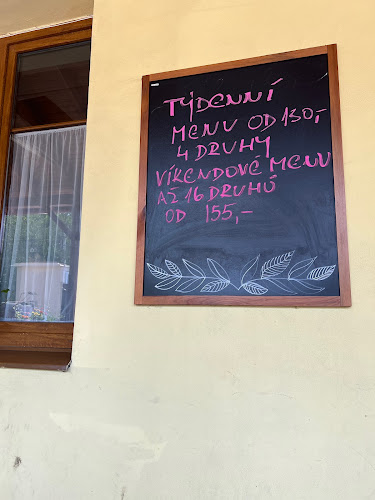 TÝDENNÍ
MENU OD 130,-
4 DRUHY
VÍKENDOVÉ MENU
AŽ 16 DRUHŮ
OD 155,-